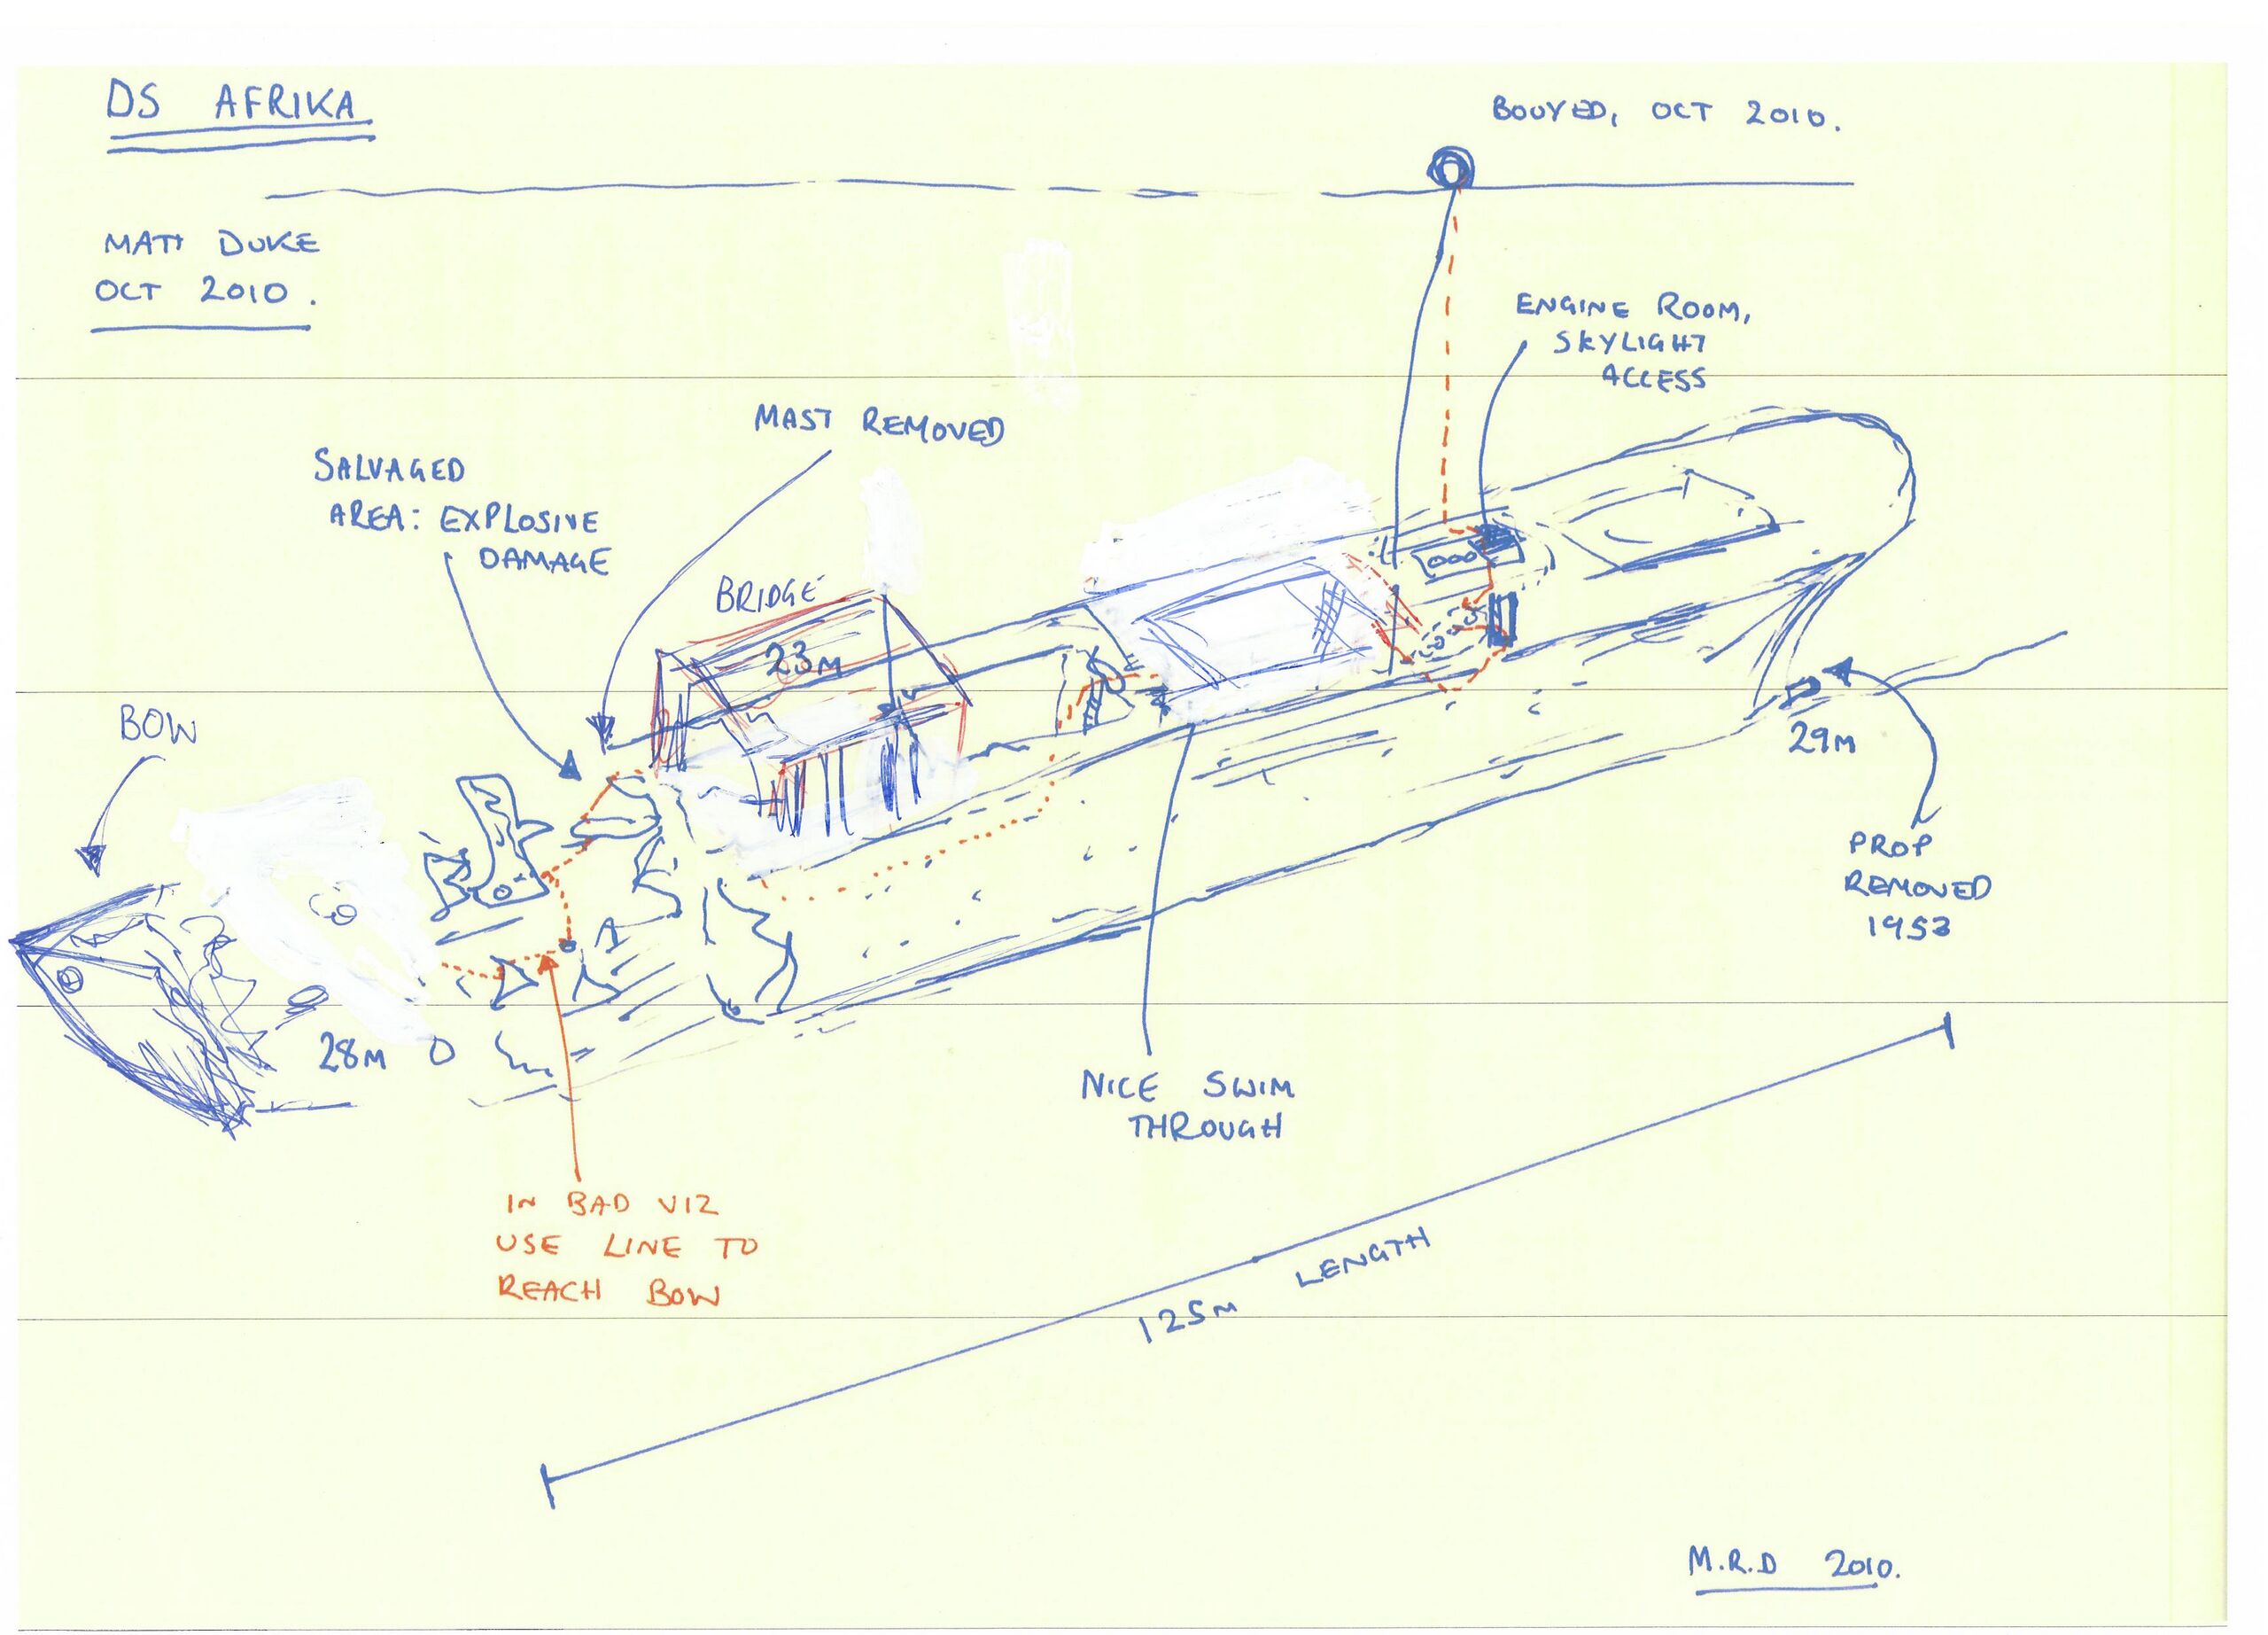 DS AFRIKA
BOUYED, OCT 2010.
MATT DUKE
OCT 2010.
ENGINE ROOM,
SKYLIGHT
ACCESS
MAST REMOVED
SALVAGED
AREA: EXPLOSIVE
DAMAGE
BRIDGE
23M
BOW
29M
PROP
REMOVED
1953
28M
NICE SWIM
THROUGH
IN BAD VIZ
USE LINE TO
REACH BOW
LENGTH
125M
M.R.D 2010.